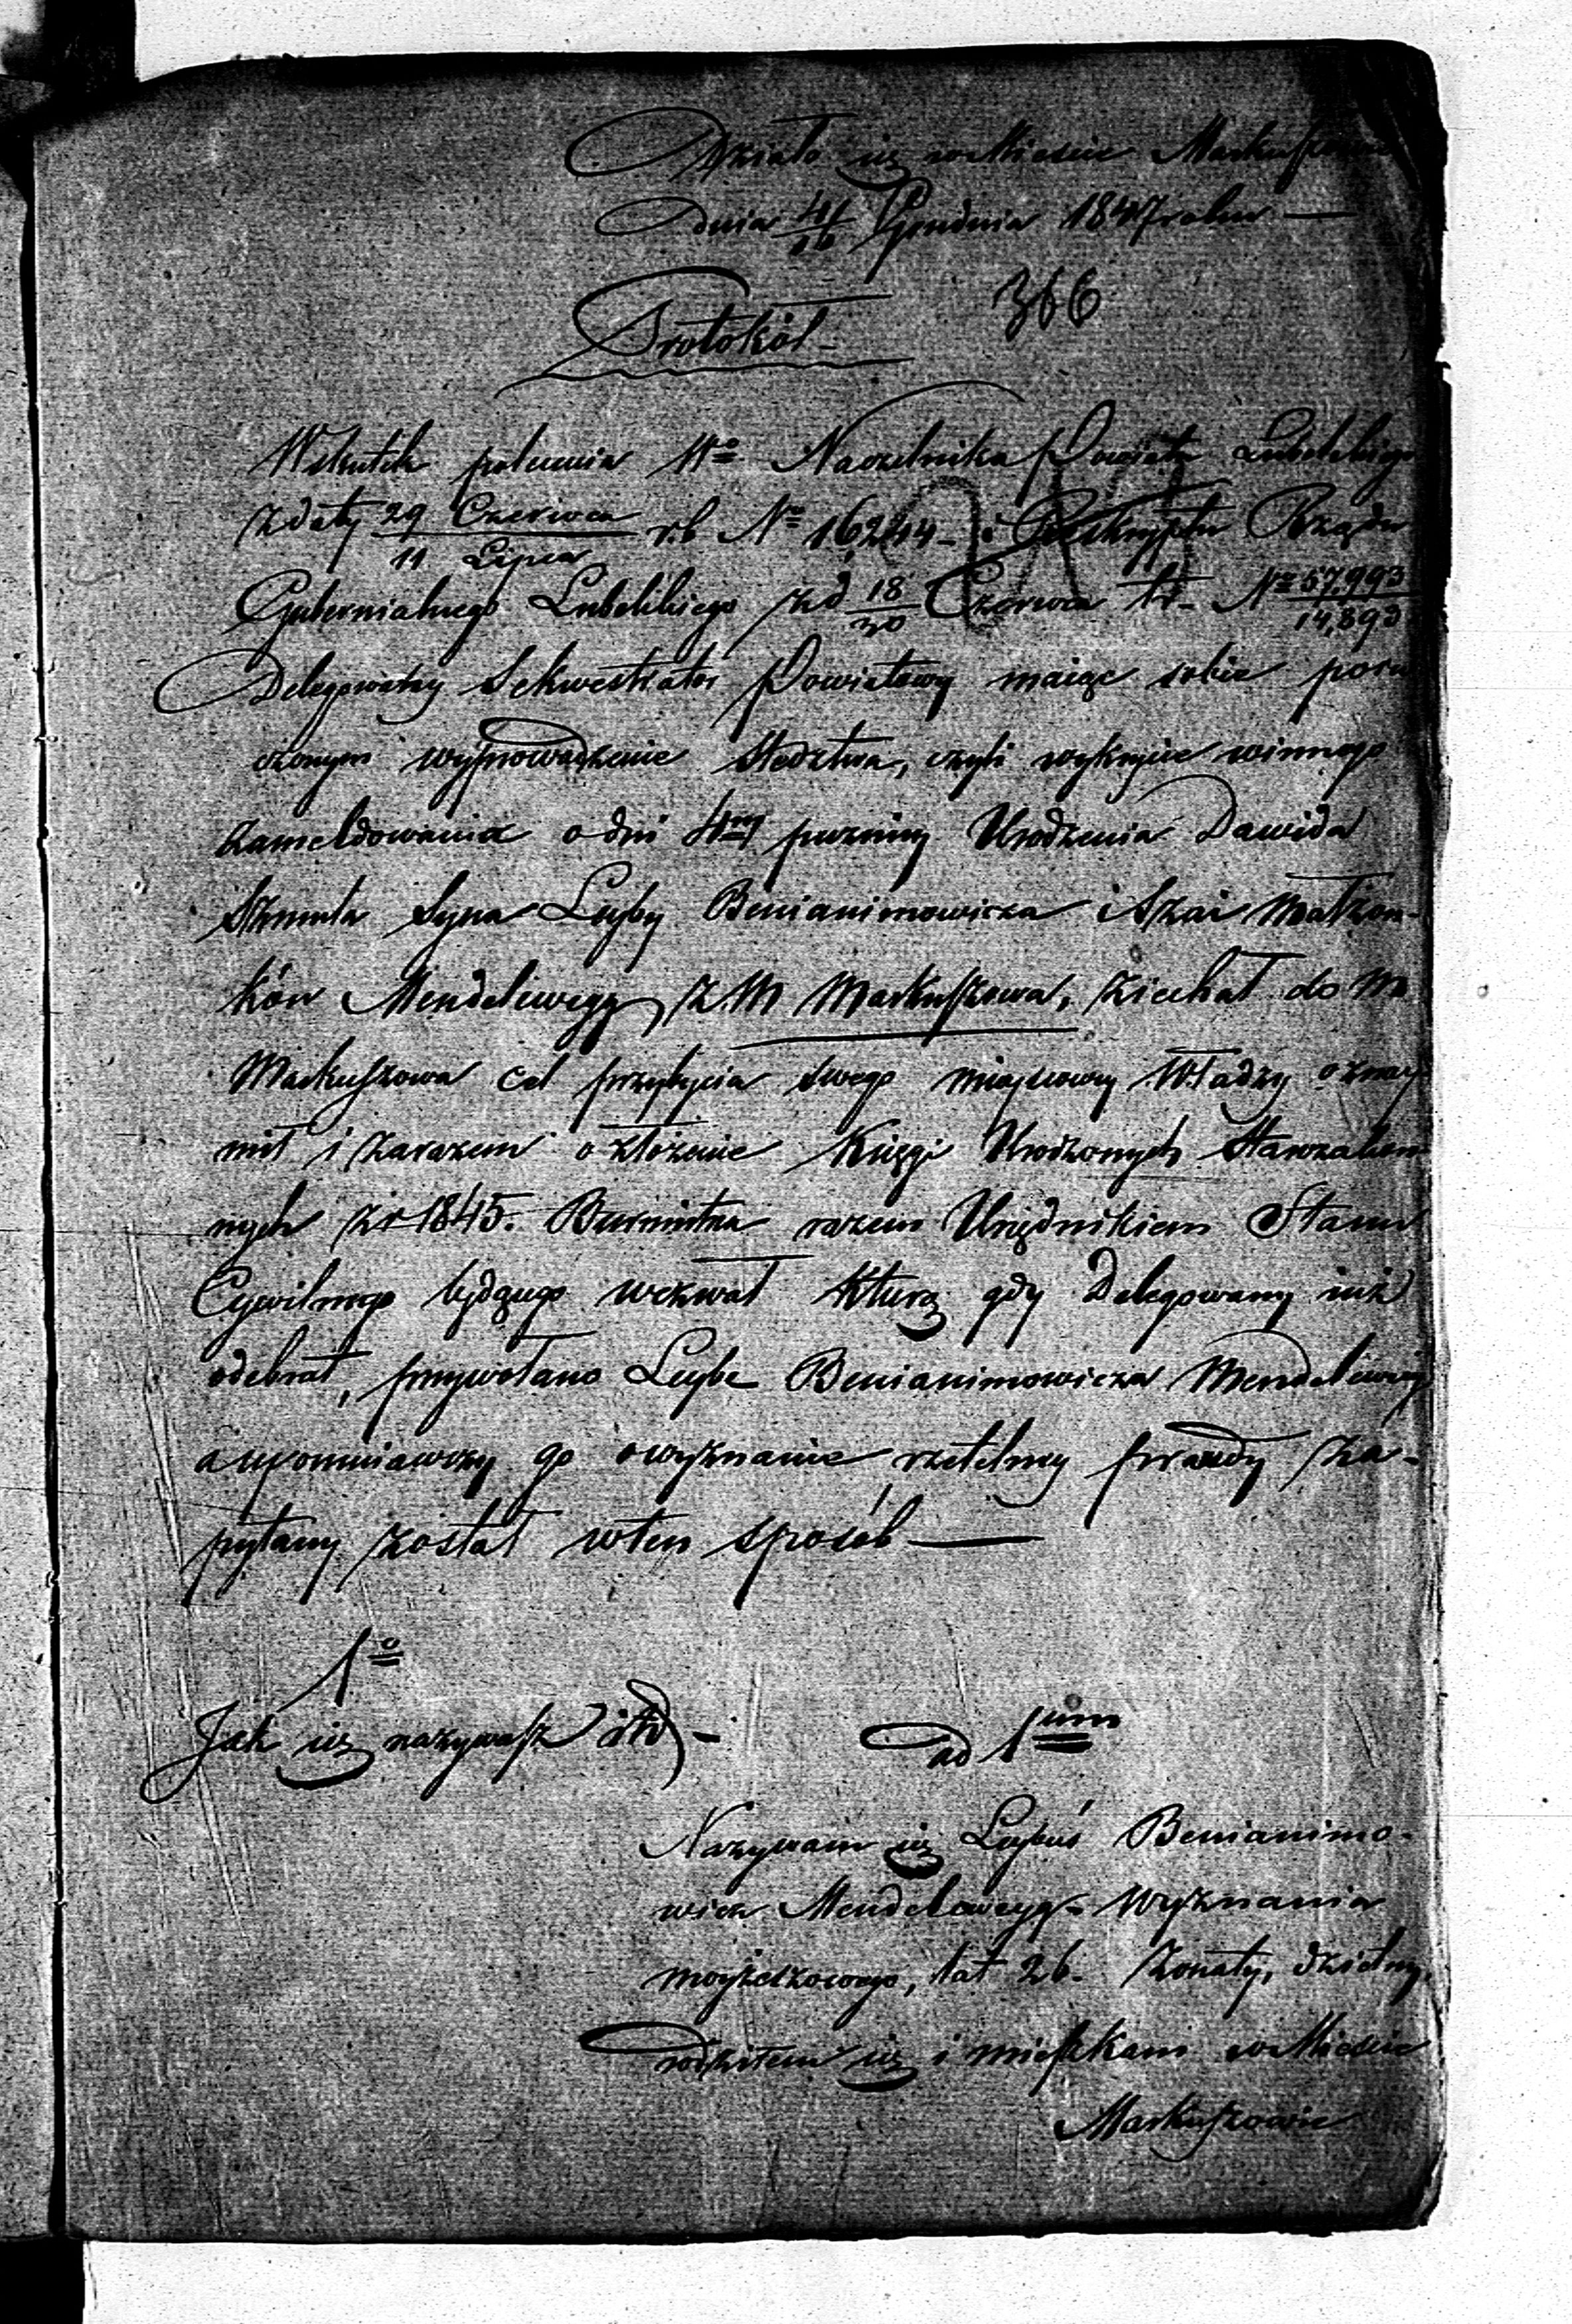 Działo się w Mieście Markuszowie
Dnia 4/16 Grudnia 1847 roku —
366
Protokół —
Wskutek polecenia Wo Naczelnika Powiatu Lubelskiego
z daty 29 Czerwca / 11 Lipca r.b No 16,244 — i Reskryptu Rządu
Gubernialnego Lubelskiego z d 18/30 Czerwca t.r. No 57.993 / 14,893
Delegowany Sekwestrator Powiatowy maiąc sobie poru
czonym wyprowadzenie Śledztwa, czyli wykrycie winnego
zameldowania o dni puzniey Urodzenia Dawida
Szmula Syna Leyby Benianimowicza i Szai małżon-
ków Mendelewegg z M Markuszowa, ziechał do M
Markuszowa cel przybycia swego mieyscowey Władzy oznay
mił i zarazem o złożenie Księgi Urodzonych Starozakon
nych z r 1845. Burmistrza razem Urzędnikiem Stanu
Cywilnego będącego wezwał którą gdy Delegowany iuż
odebrał, przywołano Leybe Benianimowicza Mendelewegg
a upomniawszy go o wyznanie rzetelney prawdy za-
pytany został w ten sposób —
1o
Jak się nazywasz itd —
ad 1um
Nazywam się Leybuś Benianimo-
wicz Mendelewegg — Wyznania
moyżeszowego, lat 26. żonaty, dzietny,
rodziłem się i mieszkam w Mieście
Markuszowie